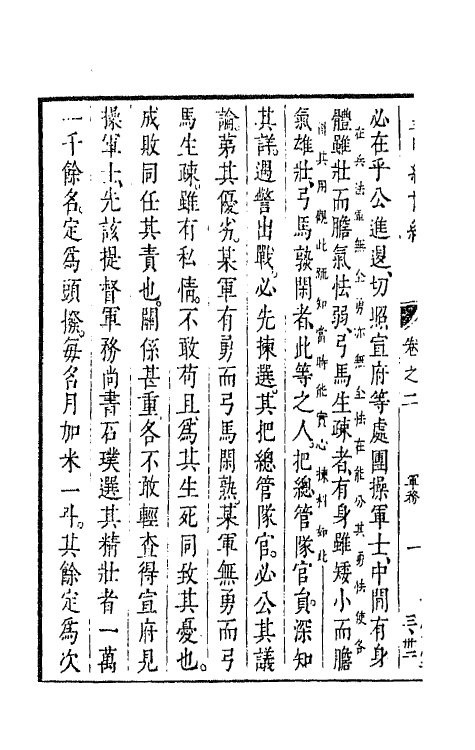 卷之二
軍務
一
必在乎公進退切照宣府等處團操軍士中間有身
在兵法云無全勇亦無全怯在能分其勇怯使各
體雖壯而膽氣怯弱弓馬生疎者有身雖矮小而膽
用其用觀此疏知當時能實心揀料如此
氣雄壯弓馬孰閑者此等之人把總管隊官員深知
其詳遇警出戰必先揀選其把總管隊官必公其議
論第其優劣某軍有勇而弓馬閑熟某軍無勇而弓
馬生疎雖有私情不敢苟且為其生死同致其憂也
成敗同任其責也關係甚重各不敢輕查得宣府見
操軍士先該提督軍務尚書石璞選其精壯者一萬
一千餘名定為頭撥每名月加米一斗其餘定為次